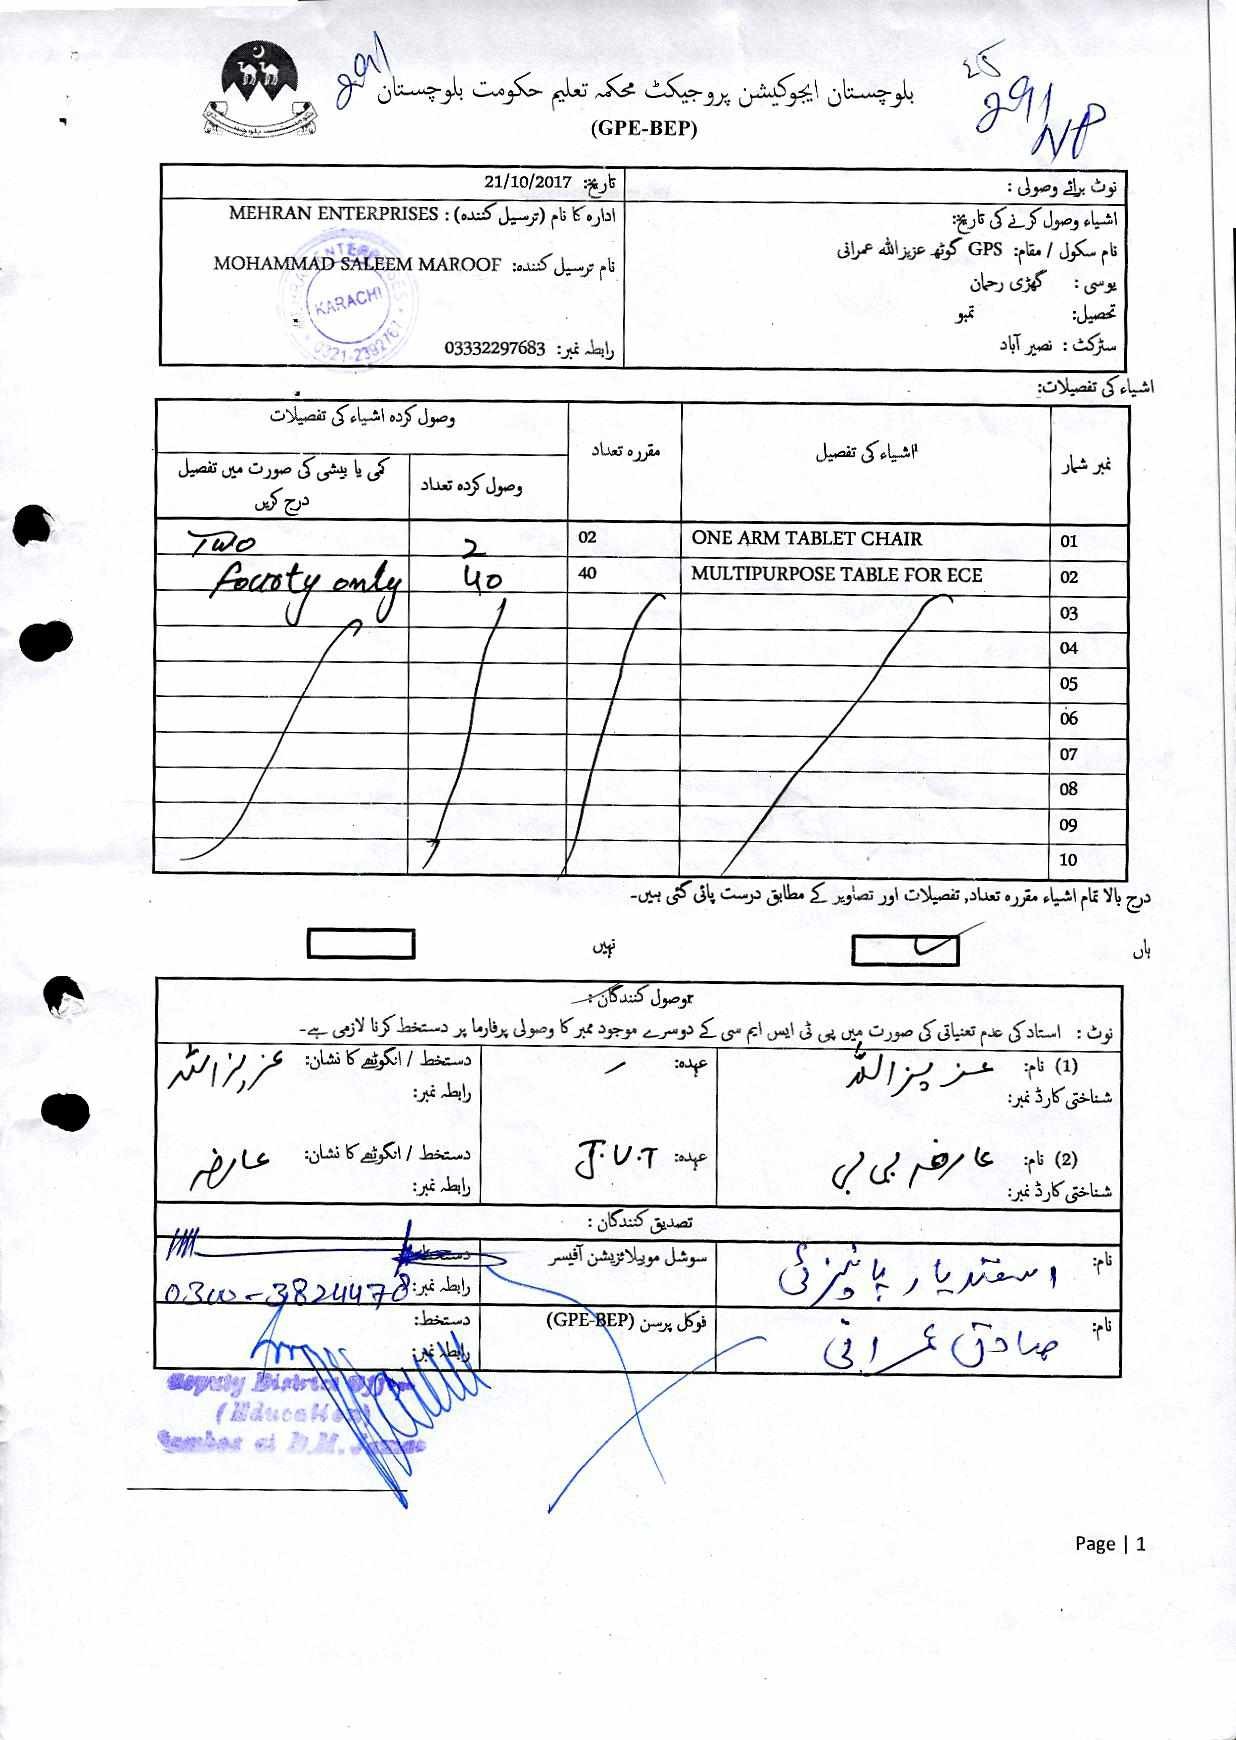 291
291
NP
بلوچستان ایجوکیشن پروجیکٹ محکمہ تعلیم حکومت بلوچستان
(GPE-BEP)
نوٹ برائے وصولی :
تاریخ: 21/10/2017
اشیاء وصول کرنے کی تاریخ:
ادارہ کا نام (ترسیل کنندہ) : MEHRAN ENTERPRISES
نام سکول / مقام: GPS گوٹھ عزیز اللہ عمرانی
نام ترسیل کنندہ: MOHAMMAD SALEEM MAROOF
یوسی : گھڑی رحمان
KARACHI
0321-2392761
تحصیل: تمبو
سٹرکٹ : نصیر آباد
رابطہ نمبر: 03332297683
اشیاء کی تفصیلات:
نمبر شمار اشیاء کی تفصیل مقررہ تعداد وصول کردہ اشیاء کی تفصیلات
وصول کردہ تعداد کمی یا بیشی کی صورت میں تفصیل درج کریں
01 ONE ARM TABLET CHAIR 02 2 Two
02 MULTIPURPOSE TABLE FOR ECE 40 40 fouroty only
03
04
05
06
07
08
09
10
درج بالا تمام اشیاء مقررہ تعداد, تفصیلات اور تصاویر کے مطابق درست پائی گئی ہیں۔
ہاں نہیں
وصول کنندگان :
نوٹ : استاد کی عدم تعنیاتی کی صورت میں پی ٹی ایس ایم سی کے دوسرے موجود ممبر کا وصولی پرفارما پر دستخط کرنا لازمی ہے۔
(1) نام: عزیز اللہ عہدہ: دستخط / انگوٹھے کا نشان: عزیز اللہ
شناختی کارڈ نمبر: رابطہ نمبر:
(2) نام: عارفہ بی بی عہدہ: J.V.T دستخط / انگوٹھے کا نشان: عارفہ
شناختی کارڈ نمبر: رابطہ نمبر:
تصدیق کنندگان :
نام: اسفندیار پانیزئی سوشل موبیلائزیشن آفیسر دستخط:
رابطہ نمبر: 0300-3824478
نام: صادق عمرانی فوکل پرسن (GPE-BEP) دستخط:
رابطہ نمبر:
Deputy District Officer
(Education)
Tamboo at D.M. Jamali
Page | 1